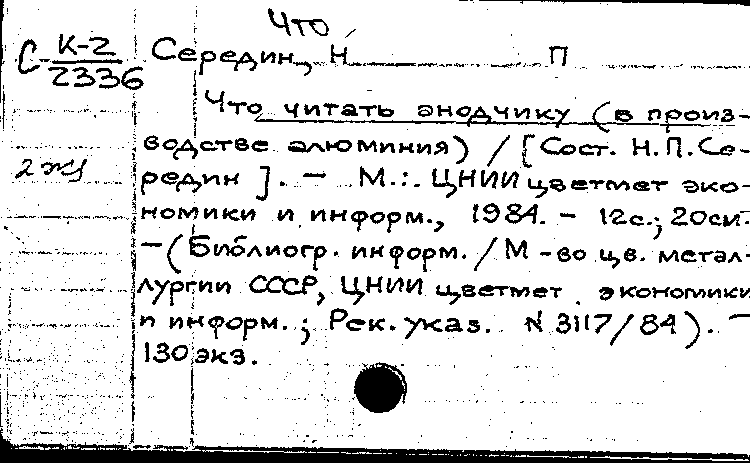 Что
С К-2/2336 Середин, Н П
Что читать анодчику (в произ-
водстве алюминия) / [Сост. Н.П.Се-
2 экз редин ]. — М.: ЦНИИцветмет эко-
номики и информ., 1984. - 12с.; 20см.
—(Библиогр. информ. / М-во цв. метал-
лургии СССР, ЦНИИ цветмет экономики
и информ.; Рек. указ. N 3117/84). —
130 экз.